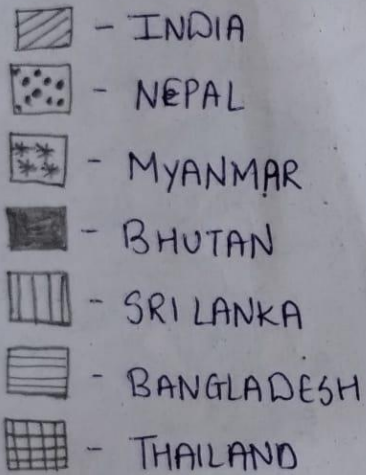 - INDIA
- NEPAL
- MYANMAR
- BHUTAN
- SRI LANKA
- BANGLADESH
- THAILAND